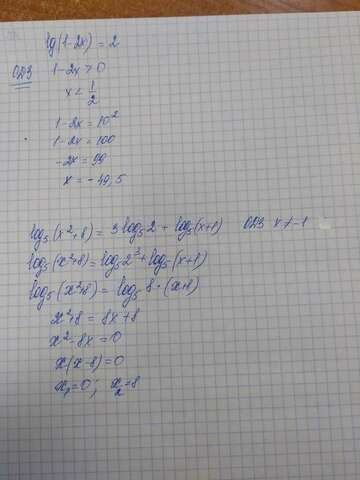 lg(1-2x) = 2
ОДЗ 1-2x > 0
x < 1/2
1-2x = 10²
1-2x = 100
-2x = 99
x = -49,5
log₅(x²+8) = 3log₅2 + log₅(x+1) ОДЗ x > -1
log₅(x²+8) = log₅2³ + log₅(x+1)
log₅(x²+8) = log₅8·(x+8)
x²+8 = 8x+8
x²-8x = 0
x(x-8) = 0
x₁=0; x₂=8